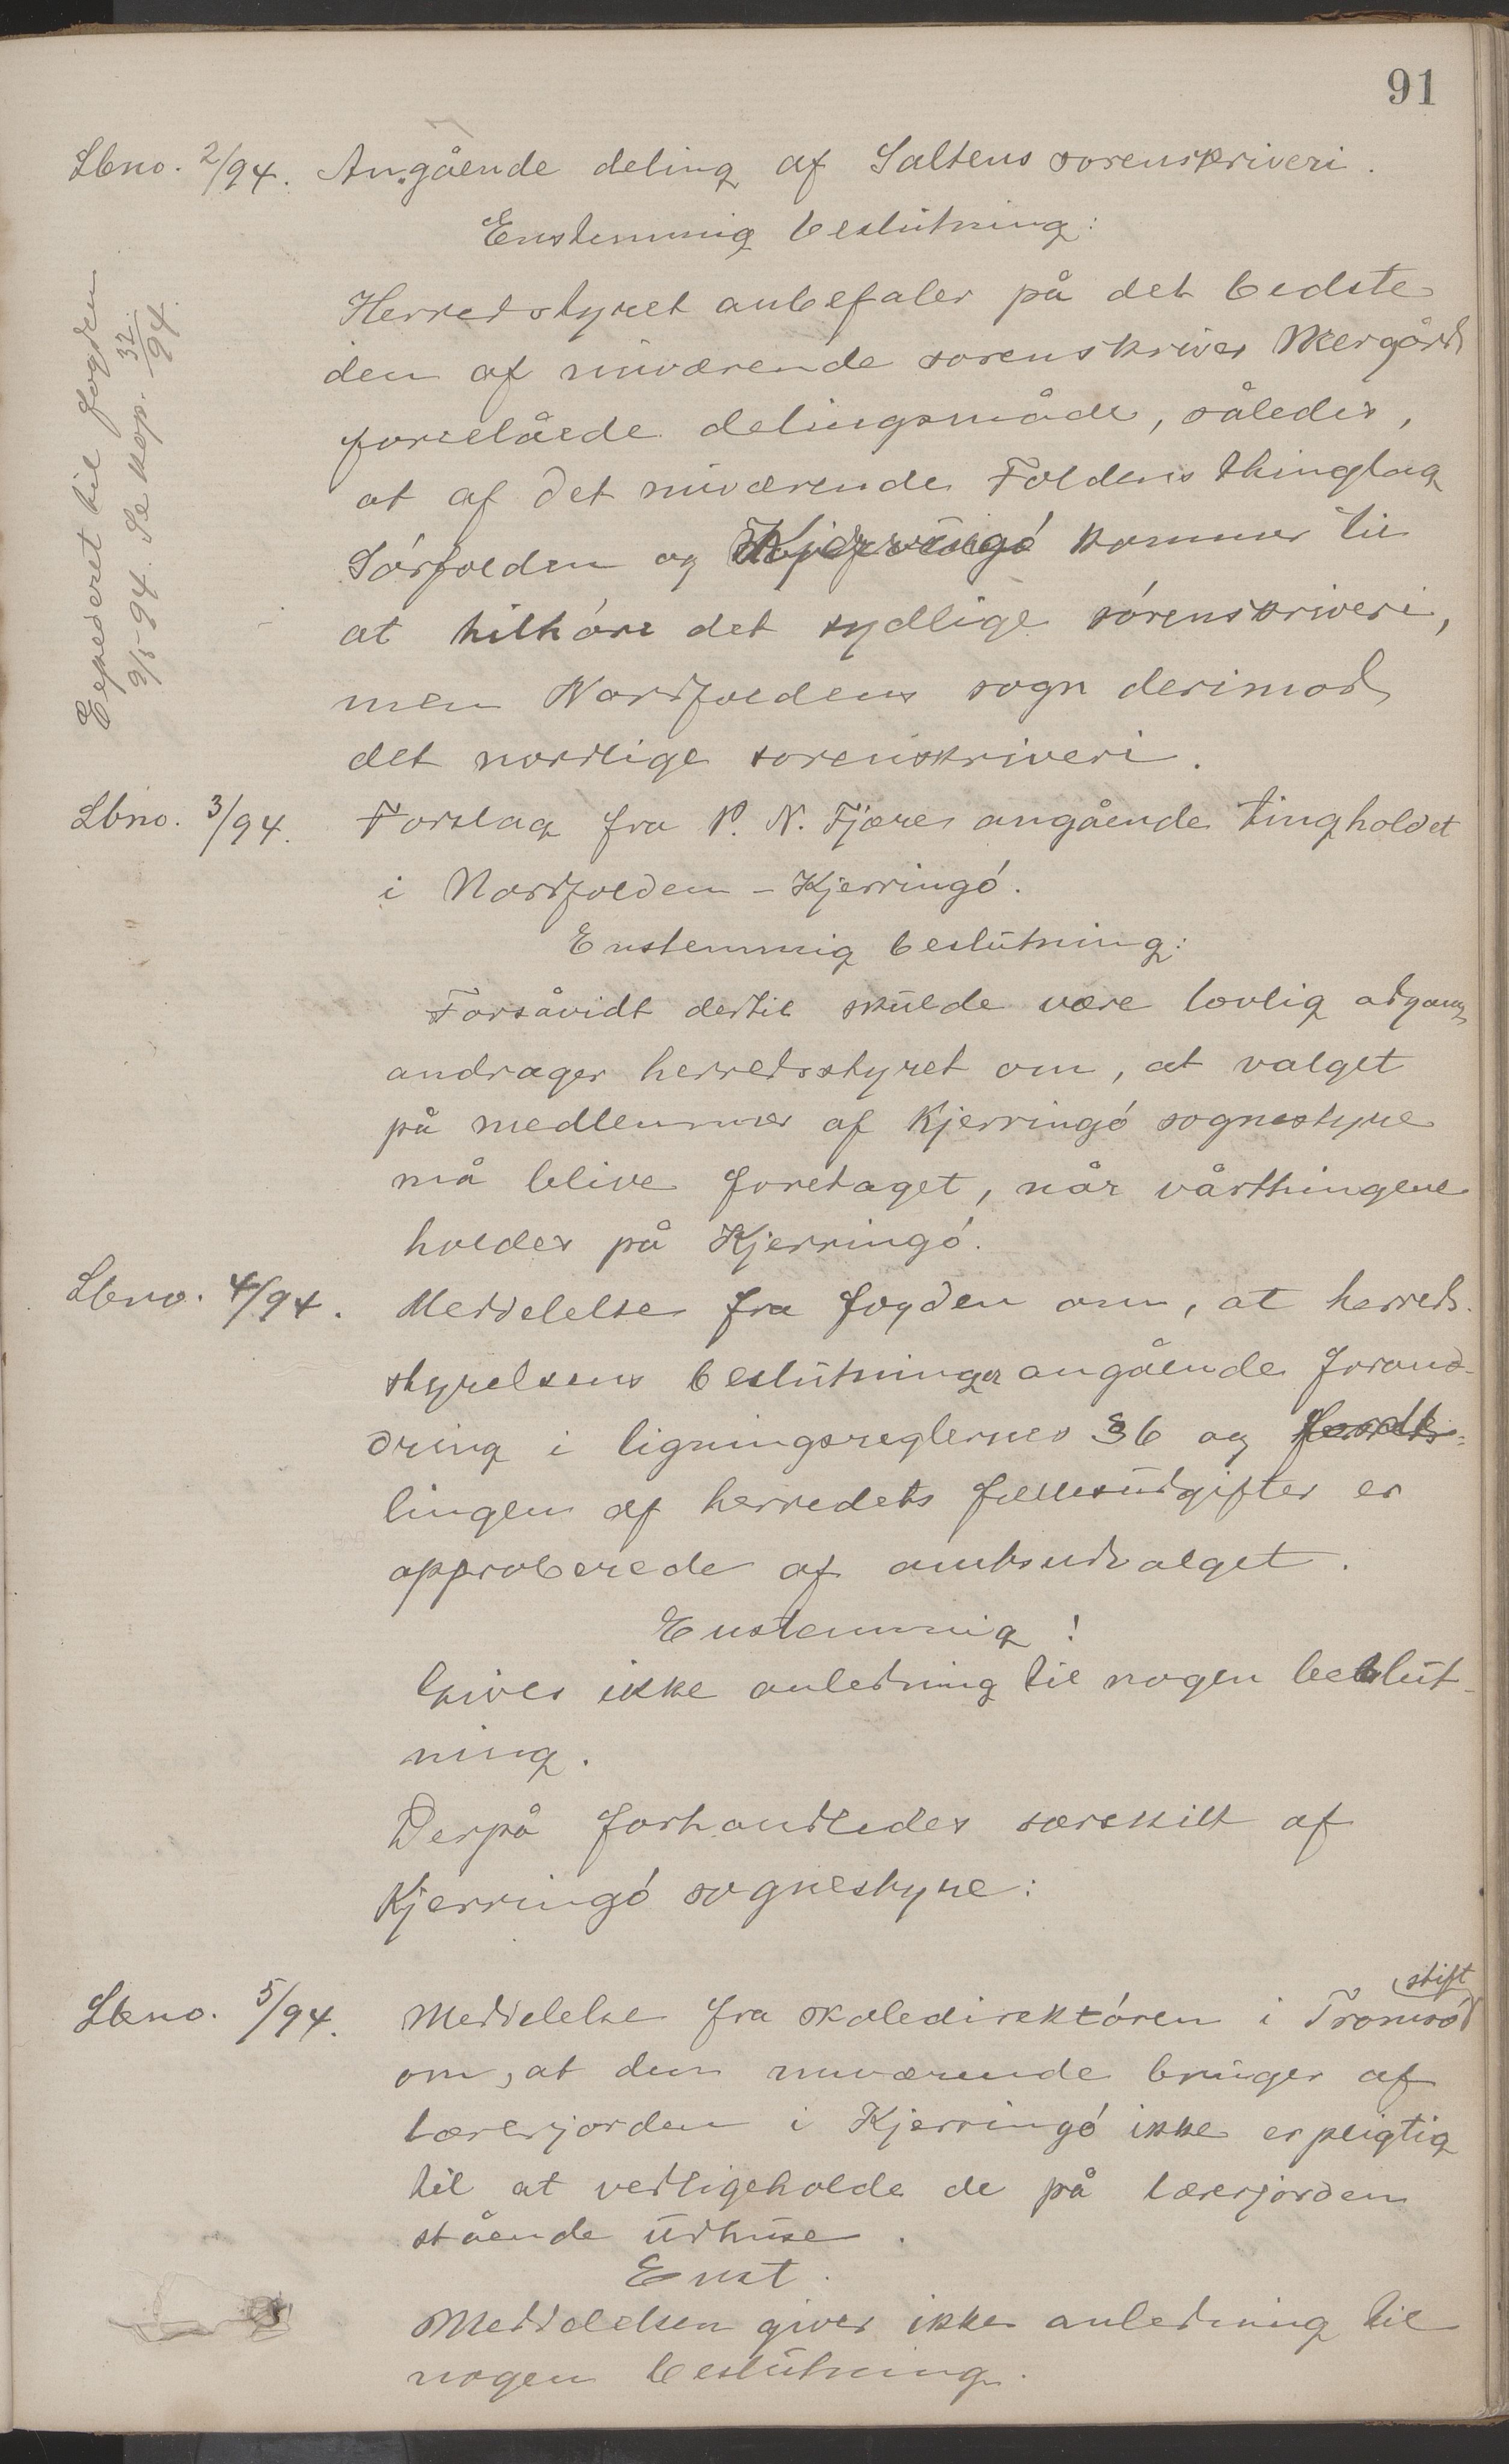 91
Lbno. 2/94. Angående deling af Saltens sorenskriveri.
Enstemmig beslutning:
Herredstyret anbefaler på det bedste
den af nuværende sorenskriver Mergård
foreslåede delingsmåde, således,
at af det nuværende Foldens thinglag
Sórfolden og Kjerringó kommer til
at tilhóre det sydlige sórenskriveri,
men Nordfoldens sogn derimod
det nordlige sorenskriveri.
Expederet til fogden
9/5-94. Se kop. 32/94.
Lbno. 3/94. Forslag fra P. N. Fjære angående tingholdet
i Nordfolden-Kjerringó.
Enstemmig beslutning:
Forsåvidt dertil skulde være lovlig adgang
andrager herredsstyret om, at valget
på medlemmer af Kjerringó sognestyre
må blive foretaget, når vårthingene
holdes på Kjerringó.
Lbno. 4/94. Meddelelse fra fogden om, at herreds-
styrelsens beslutninger angående foran-
dring i ligningsreglernes §6 og
lingen af herredets fællesudgifter er
approberede af amtsudvalget.
Enstemmig!
Gives ikke anledning til nogen beslut-
ning.
Derpå forhandledes særskilt af
Kjerringó sognestyre:
stift
Lbno. 5/94. Meddelelse fra skoledirektóren i Tromsó
om, at den nuværende bruger af
lærerjorden i Kjerringó ikke er pligtig
til at vedligeholde de på lærerjorden
stående udhuse.
Enst.
Meddelelsen giver ikke anledning til
nogen beslutning.